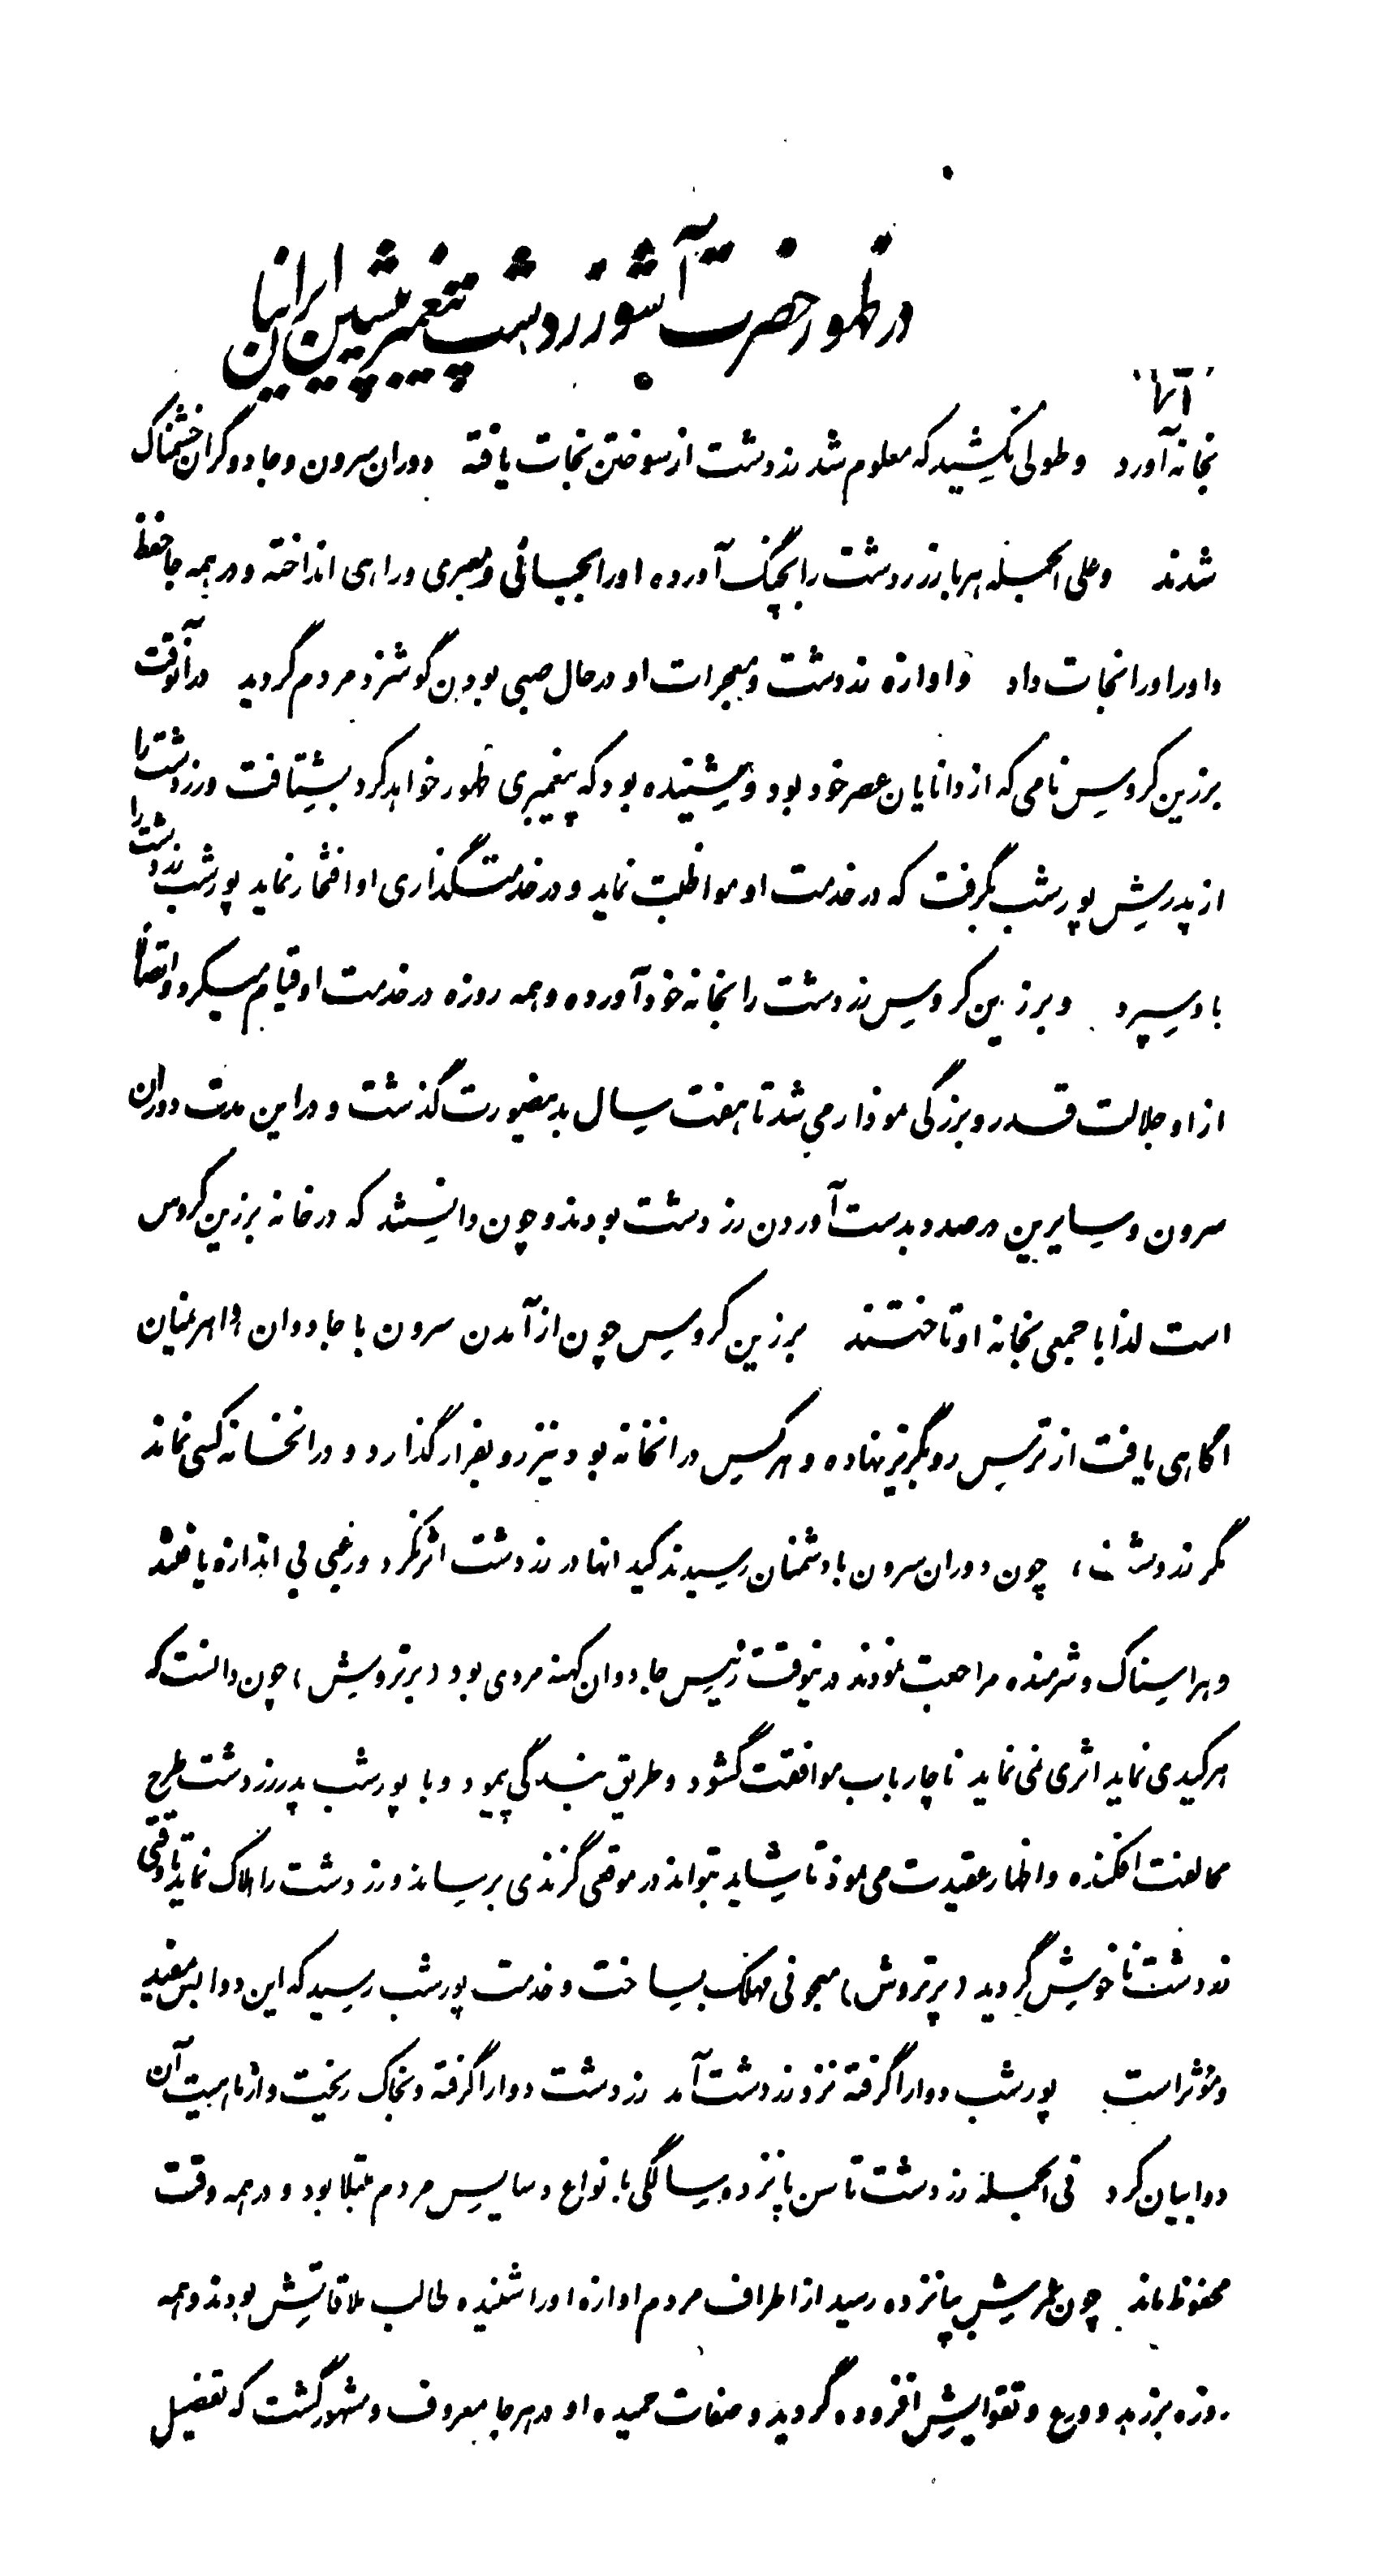 در ظهور حضرت آشو زردشت پیغمبر پیشین ایرانیان
بخانه آورد وطولی نکشید که معلوم شد زردشت از سوختن نجات یافته دوران سرون وجادوگران خشمناک
شدند وعلی الجمله هربار زردشت را بچنگ آورده اورا بجائی ومعبری وراهی انداخته ودر همه جا حفظ
داور اورا نجات داد واوازه زردشت ومعجرات او در حال صبی بودن گوشزد مردم گردید در آنوقت
برزین کروس نامی که از دانایان عصر خود بود ومیشنیده بود که پیغمبری ظهور خواهد کرد بشتافت وزردشت را
از پدرش پورشب بگرفت که در خدمت او مواظبت نماید ودر خدمتگذاری او افتخار نماید پورشب زردشت را
باو سپرد وبرزین کروس زردشت را بخانه خود آورده وهمه روزه در خدمت او قیام میکرد واتصالاً
از او جلالت قدر وبزرگی نمودار می شد تا هفت سال بدینصورت گذشت ودر این مدت دوران
سرون وسایرین در صدد بدست آوردن زردشت بودند وچون دانستند که در خانه برزین کروس
است لذا با جمعی بخانه او تاختند برزین کروس چون از آمدن سرون با جادوان واهرمنیان
اگاهی یافت از ترس رو بگریز نهاده وهرکس در انخانه بود نیز رو بفرار گذارد ودر انخانه کسی نماند
مگر زردشت، چون دوران سرون با دشمنان رسیدند کید انها در زردشت اثر نکرد ورعبی بی اندازه یافتند
وهراسناک وشرمنده مراجعت نمودند در نیوقت رئیس جادوان کهنه مردی بود (برتروش) چون دانست که
هر کیدی نماید اثری نمی نماید ناچار باب موافقت گشود وطریق بندگی پیمود وبا پورشب پدر زردشت طرح
مخالفت افکنده واظهار عقیدت می نمود تا شاید بتواند در موقعی گزندی برساند وزردشت را هلاک نماید تا وقتی
زردشت ناخوش گردید (برتروش) معجونی مهلک بساخت وخدمت پورشب رسید که این دوا بس مفید
ومؤثر است پورشب دوا را گرفته نزد زردشت آمد زردشت دوا را گرفته وبخاک ریخت واز ماهیت آن
دوا بیان کرد فی الجمله زردشت تا سن پانزده سالگی با نواع دسایس مردم مبتلا بود ودر همه وقت
محفوظ ماند چون عمرش بپانزده رسید از اطراف مردم اوازه اورا شنیده طالب ملاقاتش بودند وهمه
روزه بزهد وورع وتقوایش افزوده گردید وصفات حمیده او در هر جا معروف ومشهور گشت که تفضیل